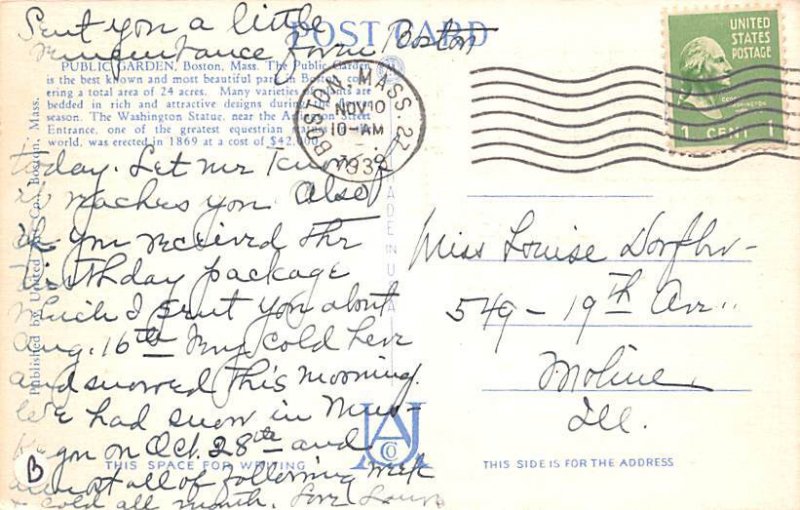 Sent you a little
remembrance from Boston
POST CARD
PUBLIC GARDEN, Boston, Mass. The Public Garden
is the best known and most beautiful park in Boston, cov-
ering a total area of 24 acres. Many varieties of plants are
bedded in rich and attractive designs during the
season. The Washington Statue, near the Arlington Street
Entrance, one of the greatest equestrian statues in the
world, was erected in 1869 at a cost of $42,000.
today. Let me know if
it reaches you. Also
if you received the
birthday package
which I sent you about
Aug. 16th. Very cold here
and snowed this morning.
We had snow in Mus-
kegon on Oct. 28th and
almost all of following week
& cold all month. Love Laura
B
THIS SPACE FOR WRITING
Published by United Art Co., Boston, Mass.
MADE IN U.S.A.
UA Co
BOSTON MASS. 27
NOV 10
10-AM
UNITED
STATES
POSTAGE
1 CENT 1
Miss Louise
549 - 19th Ave.
Moline
Ill.
THIS SIDE IS FOR THE ADDRESS